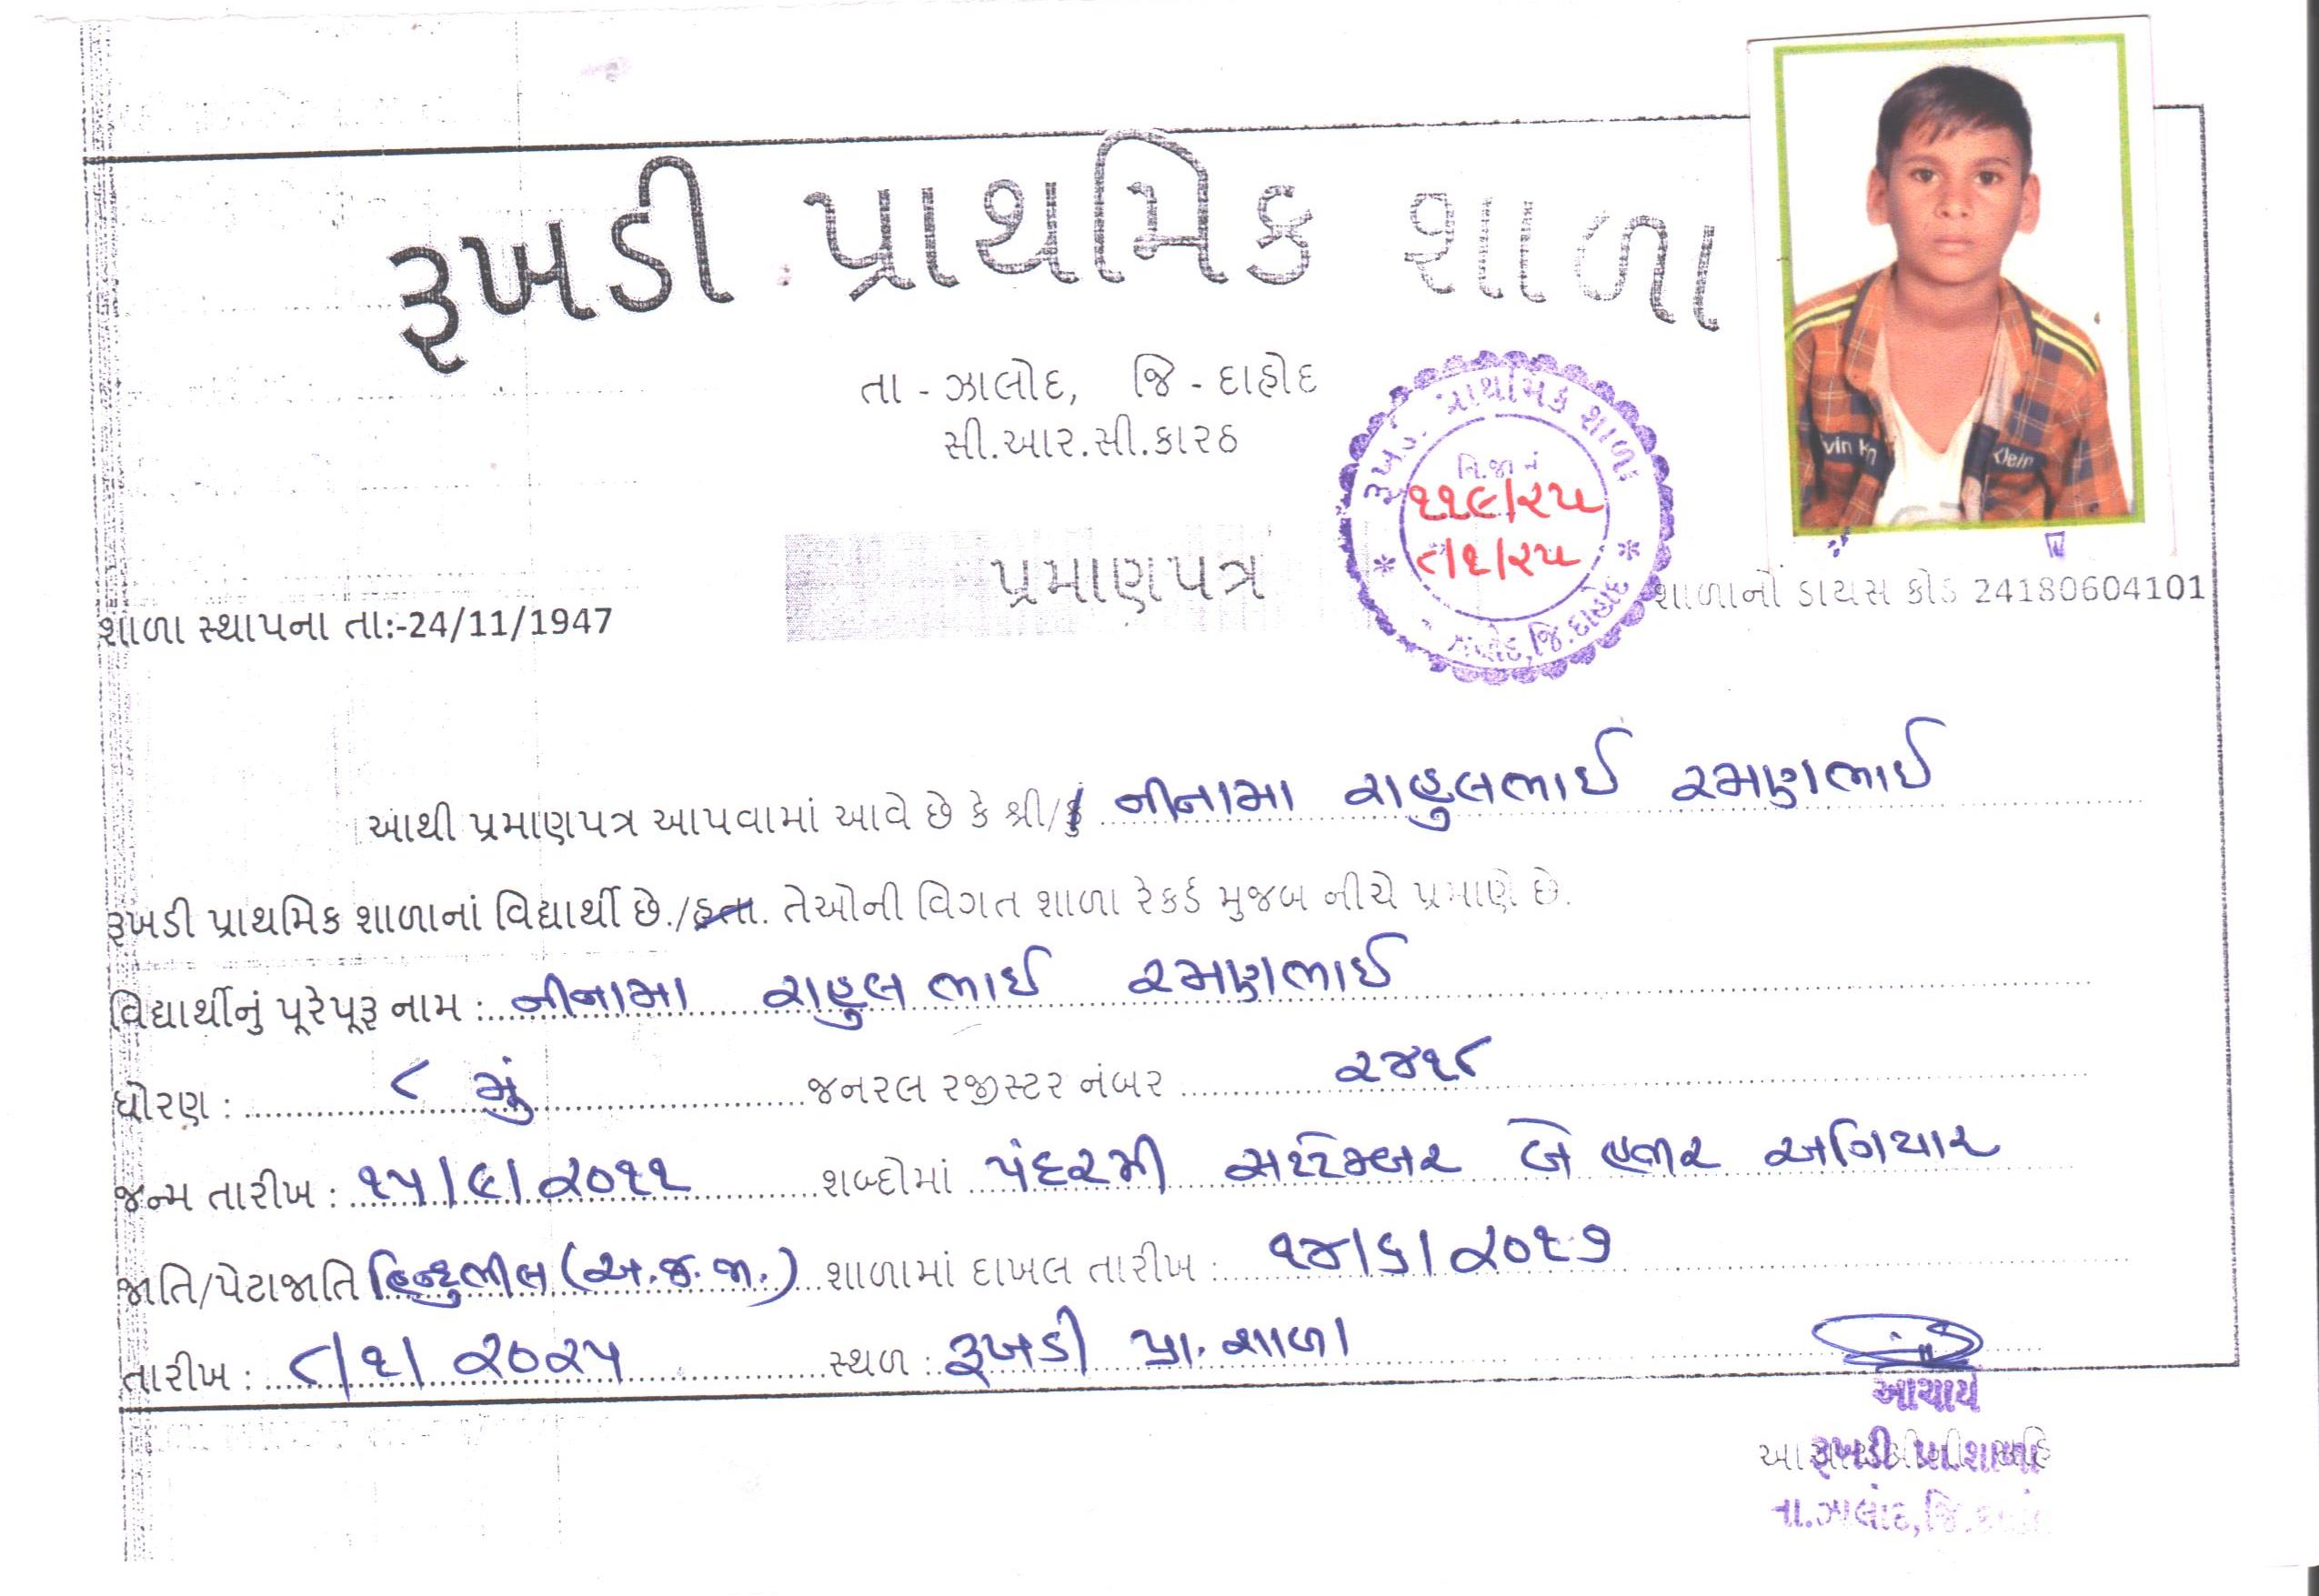 રૂખડી પ્રાથમિક શાળા
તા - ઝાલોદ, જિ - દાહોદ
સી.આર.સી.કારઠ
રૂખડી પ્રાથમિક શાળા
નિ.જા નં
૧૧૯/૨૫
૮/૧/૨૫
ઝાલોદ,જિ.દાહોદ
પ્રમાણપત્ર
શાળા સ્થાપના તા:-24/11/1947
શાળાનો ડાયસ કોડ 24180604101
આથી પ્રમાણપત્ર આપવામાં આવે છે કે શ્રી/કુ નીનામા રાહુલભાઈ રમણભાઈ
રૂખડી પ્રાથમિક શાળાનાં વિદ્યાર્થી છે./હતા. તેઓની વિગત શાળા રેકર્ડ મુજબ નીચે પ્રમાણે છે.
વિદ્યાર્થીનું પૂરેપૂરૂ નામ : નીનામા રાહુલભાઈ રમણભાઈ
ધોરણ : ૮ મું જનરલ રજીસ્ટર નંબર ૨૪૧૮
જન્મ તારીખ : ૧૫/૯/૨૦૧૧ શબ્દોમાં પંદરમી સપ્ટેમ્બર બે હજાર અગિયાર
જાતિ/પેટાજાતિ હિન્દુભીલ (અ.જ.જા.) શાળામાં દાખલ તારીખ : ૧૪/૬/૨૦૧૭
તારીખ : ૮/૧/૨૦૨૫ સ્થળ : રૂખડી પ્રા. શાળા
આચાર્ય
રૂખડી પ્રા.શાળા
તા.ઝાલોદ,જિ.